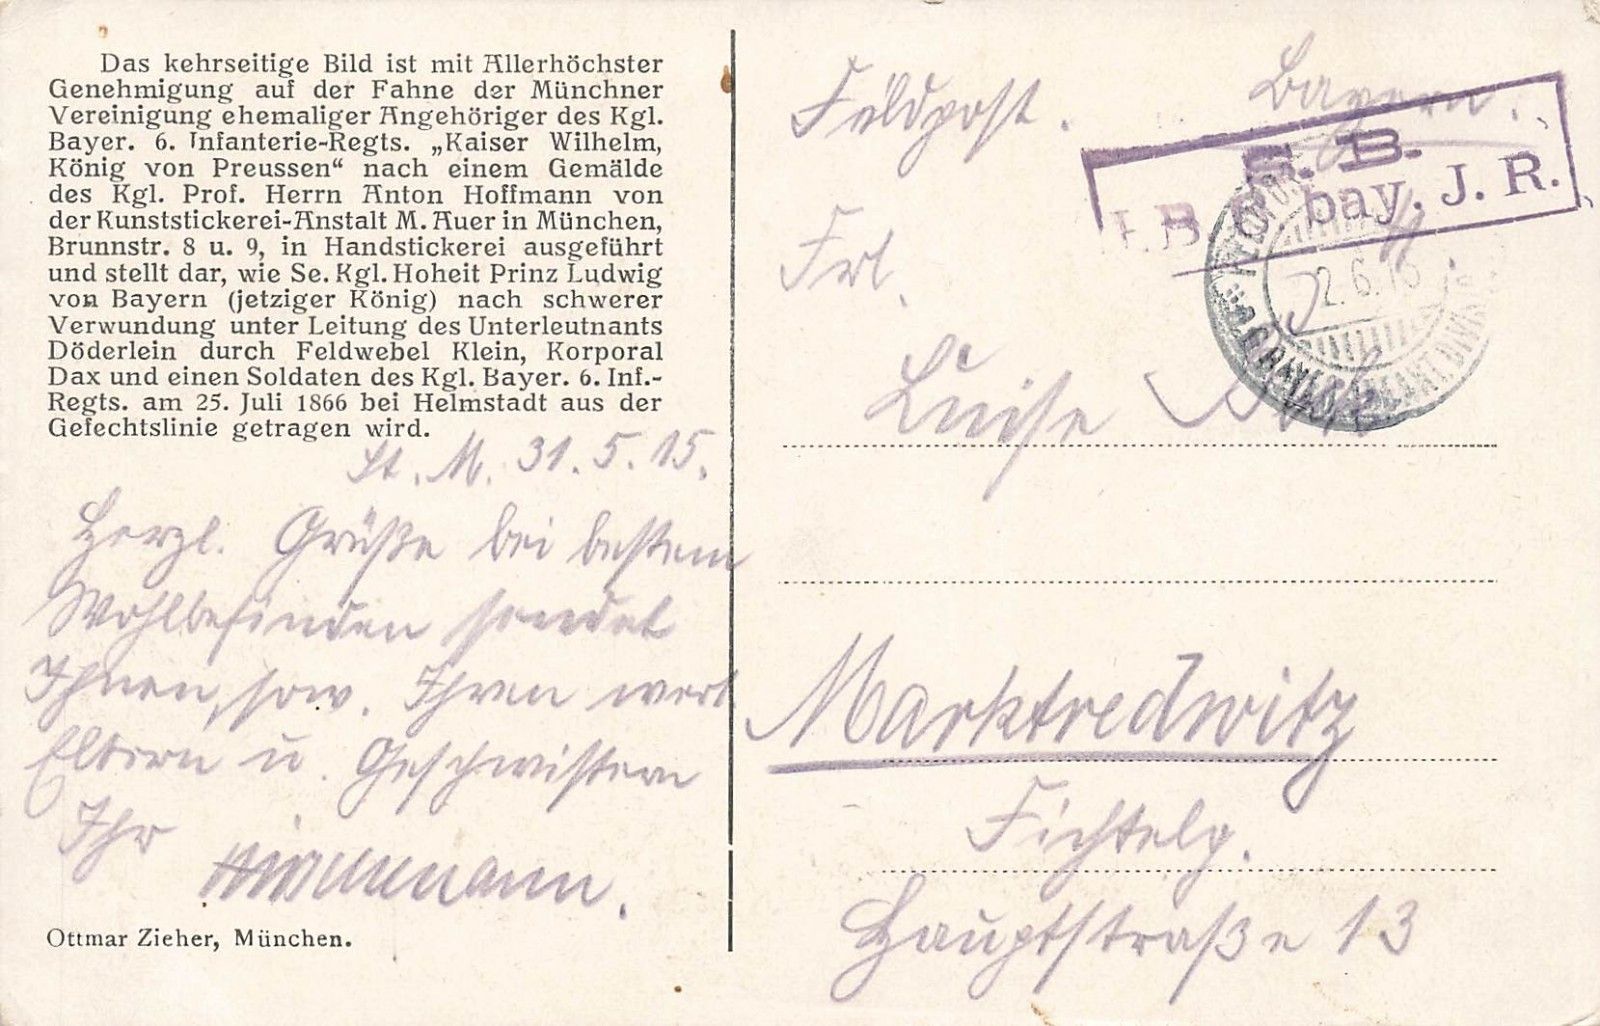 Das kehrseitige Bild ist mit Allerhöchster
Genehmigung auf der Fahne der Münchner
Vereinigung ehemaliger Angehöriger des Kgl.
Bayer. 6. Infanterie-Regts. „Kaiser Wilhelm,
König von Preussen“ nach einem Gemälde
des Kgl. Prof. Herrn Anton Hoffmann von
der Kunststickerei-Anstalt M. Auer in München,
Brunnstr. 8 u. 9, in Handstickerei ausgeführt
und stellt dar, wie Se. Kgl. Hoheit Prinz Ludwig
von Bayern (jetziger König) nach schwerer
Verwundung unter Leitung des Unterleutnants
Döderlein durch Feldwebel Klein, Korporal
Dax und einen Soldaten des Kgl. Bayer. 6. Inf.-
Regts. am 25. Juli 1866 bei Helmstadt aus der
Gefechtslinie getragen wird.
St. M. 31. 5. 15.
Herzl. Grüße bei bestem
Wohlbefinden sendet
Ihnen, sow. Ihren wert.
Eltern u. Geschwistern
Ihr
Ottmar Zieher, München.
Feldpost. Bayern.
S. B.
bay. J. R.
Frl.
Luise
Marktredwitz
Fichtelg.
Hauptstraße 13